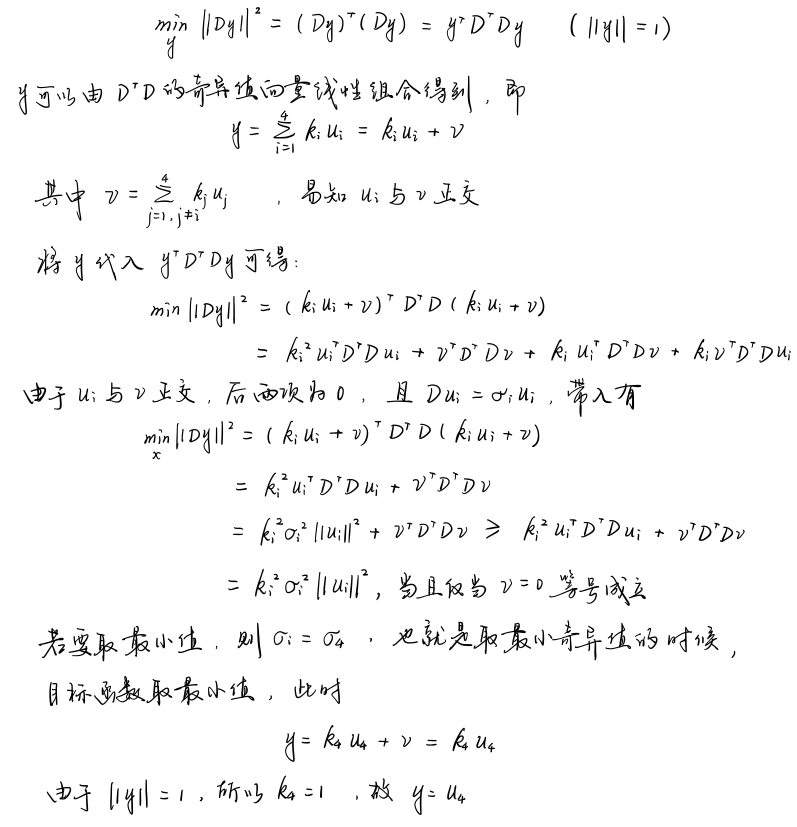 min_y ||Dy||² = (Dy)ᵀ(Dy) = yᵀDᵀDy (||y|| = 1)
y可以由 DᵀD 的奇异值向量线性组合得到，即
y = Σ_{i=1}^{4} kᵢuᵢ = kᵢuᵢ + v
其中 v = Σ_{j=1, j≠i}^{4} kⱼuⱼ ，易知 uᵢ 与 v 正交
将 y 代入 yᵀDᵀDy 可得：
min ||Dy||² = (kᵢuᵢ + v)ᵀ DᵀD (kᵢuᵢ + v)
= kᵢ²uᵢᵀDᵀDuᵢ + vᵀDᵀDv + kᵢuᵢᵀDᵀDv + kᵢvᵀDᵀDuᵢ
由于 uᵢ 与 v 正交，后两项为 0，且 Duᵢ = σᵢuᵢ，带入有
min_x ||Dy||² = (kᵢuᵢ + v)ᵀ DᵀD (kᵢuᵢ + v)
= kᵢ²uᵢᵀDᵀDuᵢ + vᵀDᵀDv
= kᵢ²σᵢ²||uᵢ||² + vᵀDᵀDv ≥ kᵢ²uᵢᵀDᵀDuᵢ + vᵀDᵀDv
= kᵢ²σᵢ²||uᵢ||²，当且仅当 v=0 等号成立
若要取最小值，则 σᵢ = σ₄ ，也就是取最小奇异值的时候，
目标函数取最小值，此时
y = k₄u₄ + v = k₄u₄
由于 ||y|| = 1，所以 k₄ = 1 ，故 y = u₄